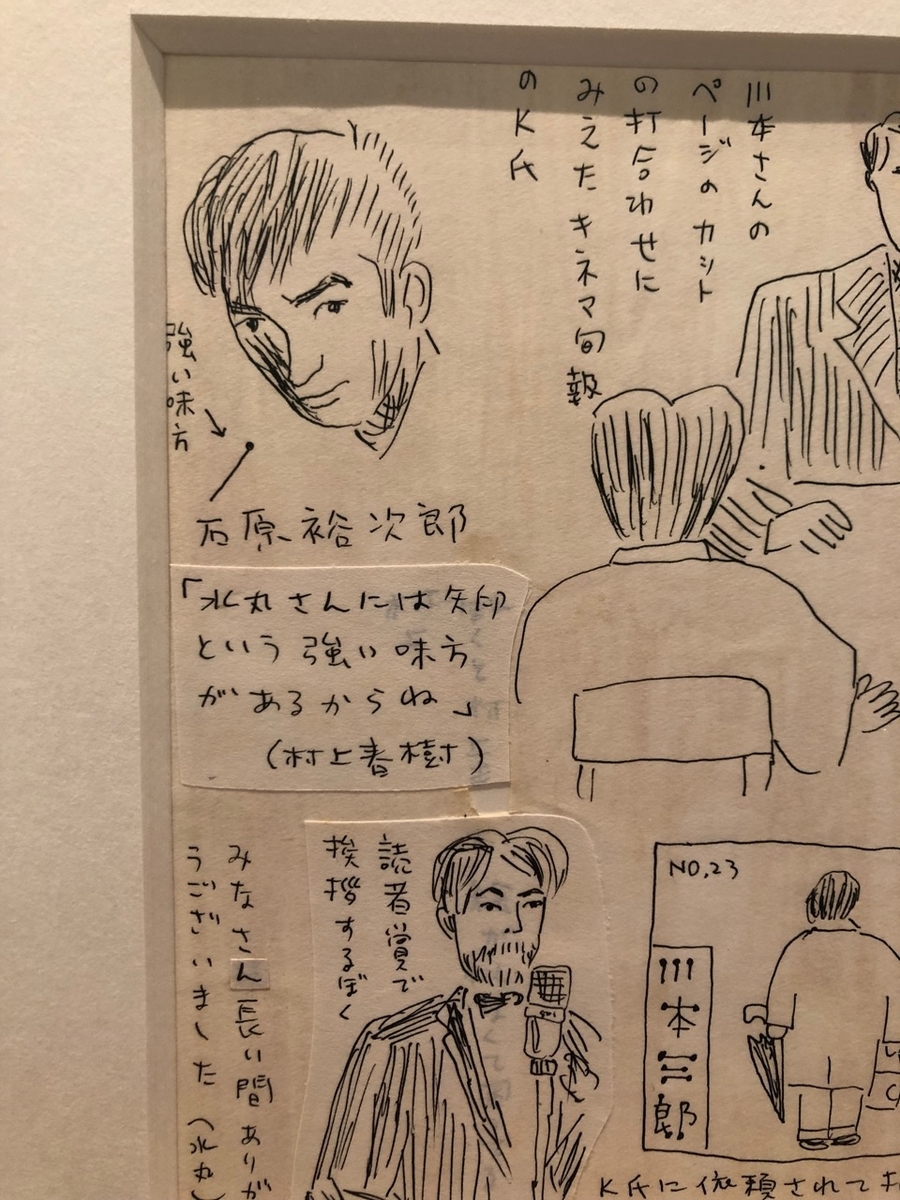 川本さんの
ページのカット
の打合わせに
みえたキネマ旬報
のK氏
強い味方
石原裕次郎
「水丸さんには矢印
という強い味方
があるからね」
(村上春樹)
読者賞で
挨拶するぼく
みなさん長い間ありが
うございました(水丸)
NO,23
川本三郎
K氏に依頼されて